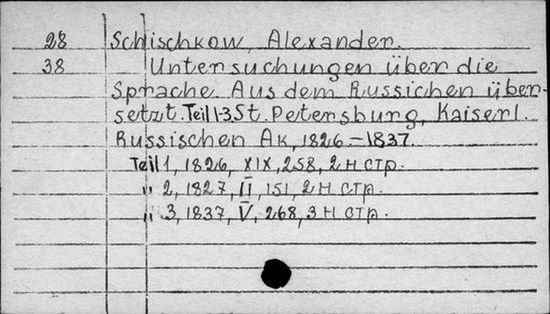 28 Schischkow, Alexander.
38 Untersuchungen über die
Sprache. Aus dem Russichen über-
setzt. Teil 1-3, St. Petersburg, Kaiserl.
Russischen Ak, 1826-1837.
Teil 1, 1826, XIX, 258, 2 н стр.
" 2, 1827, II, 151, 2 н стр.
" 3, 1837, V, 268, 3 н стр.